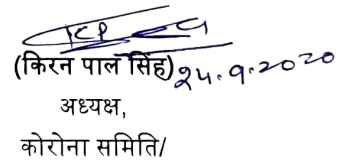 (किरन पाल सिंह) 24.9.2020
अध्यक्ष,
कोरोना समिति/